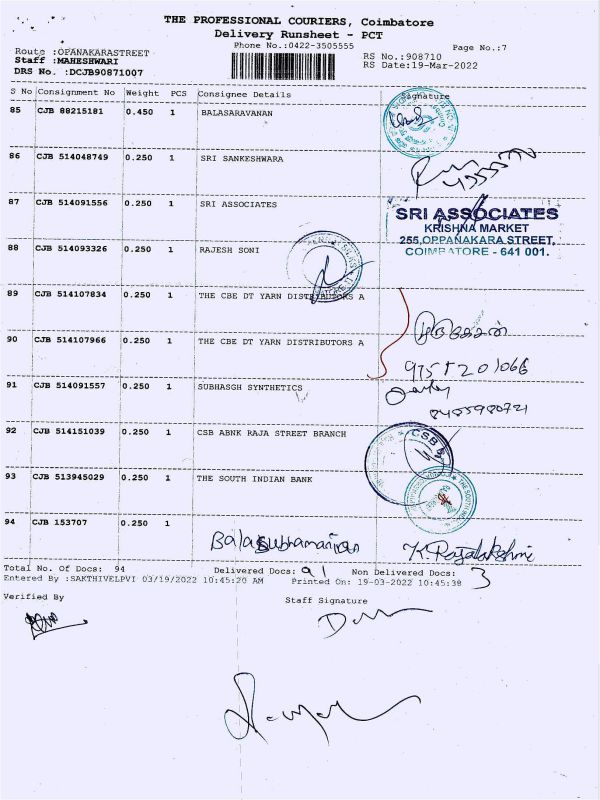 THE PROFESSIONAL COURIERS, Coimbatore
Delivery Runsheet - PCT
Phone No.:0422-3505555
Page No.:7
Route :OPANAKARASTREET
Staff :MAHESHWARI
DRS No. :DCJB90871007
RS No.:908710
RS Date:19-Mar-2022
S No Consignment No Weight PCS Consignee Details Signature
85 CJB 88215181 0.450 1 BALASARAVANAN
86 CJB 514048749 0.250 1 SRI SANKESHWARA
87 CJB 514091556 0.250 1 SRI ASSOCIATES
SRI ASSOCIATES
KRISHNA MARKET
255,OPPANAKARA STREET,
COIMBATORE - 641 001.
88 CJB 514093326 0.250 1 RAJESH SONI
89 CJB 514107834 0.250 1 THE CBE DT YARN DISTRIBUTORS A
90 CJB 514107966 0.250 1 THE CBE DT YARN DISTRIBUTORS A
91 CJB 514091557 0.250 1 SUBHASGH SYNTHETICS
92 CJB 514151039 0.250 1 CSB ABNK RAJA STREET BRANCH
CSB
93 CJB 513945029 0.250 1 THE SOUTH INDIAN BANK
94 CJB 153707 0.250 1
Balasubramanian K Rajalakshmi
Total No. Of Docs: 94 Delivered Docs: 91 Non Delivered Docs: 3
Entered By :SAKTHIVELPVI 03/19/2022 10:45:20 AM Printed On: 19-03-2022 10:45:38
Verified By Staff Signature